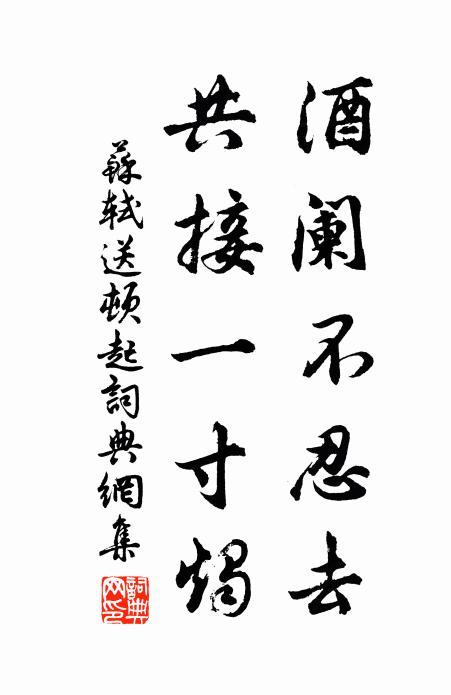 酒阑不忍去
共接一寸燭
蘇軾送頓起詞典網集
詞典网印